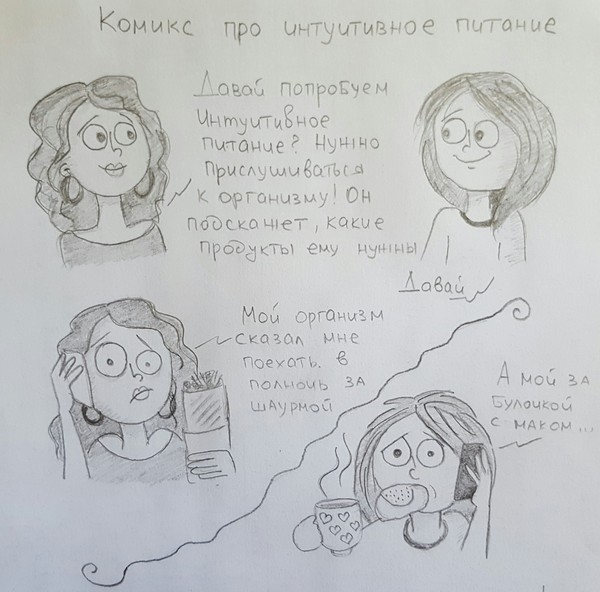 Комикс про интуитивное питание
Давай попробуем
Интуитивное
питание? Нужно
прислушиваться
к организму! Он
подскажет, какие
продукты ему нужны
Давай
Мой организм
сказал мне
поехать в
полночь за
шаурмой
А мой за
булочкой
с маком...